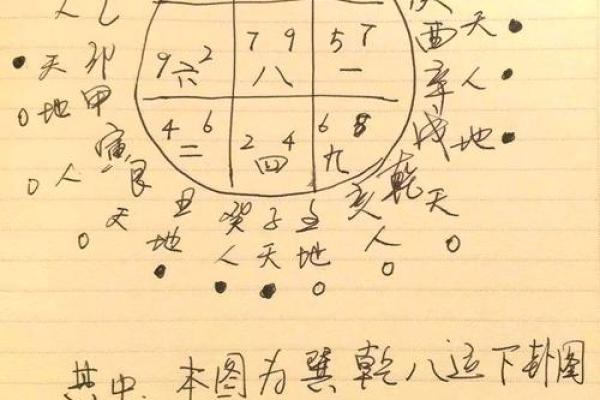 人 乙
7 9 5 7
9 六 2 八 一
酉 天
天 卯
辛 人
地 甲
4 6 2 4 6 8
二 四 九
戌 地
人 寅 艮
乾 天
天 丑 癸 子 壬 亥
地 人 天 地 人
其中,本图为巽乾八运下卦图